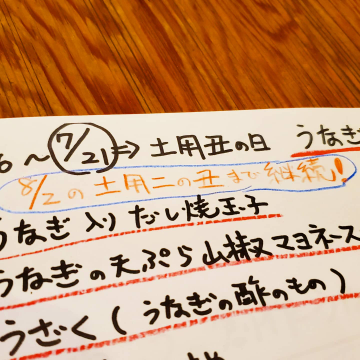 6～7/21⇒土用丑の日 うなぎ
8/2の土用二の丑まで継続!
うなぎ入りだし焼玉子
うなぎの天ぷら山椒マヨネース
うざく(うなぎの酢のもの)